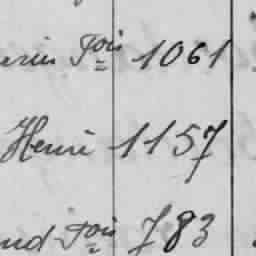 Fois 1061
Henri 1157
Fois 783